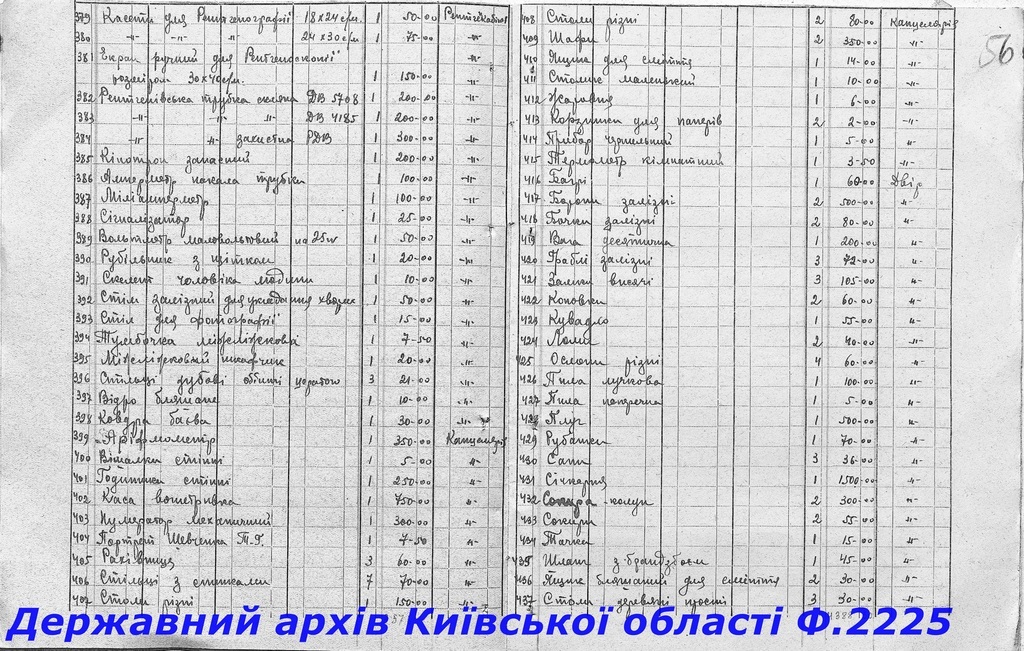 379 Касети для Рентгенографії 18х24 см. 1 50-00 Рентг.кабінет
380 -"- -"- -"- 24х30 см 1 75-00 -"-
381 Екран ручний для Рентгеноскопії -"-
розміром 30х40 см. 1 150-00 -"-
382 Рентгенівська трубка скляна ДВ 5708 1 200-00 -"-
383 -"- -"- -"- ДВ 4185 1 200-00 -"-
384 -"- -"- захистна РДВ 1 300-00 -"-
385 Кінотрон запасний 1 200-00 -"-
386 Амперметр накала трубки 1 100-00 -"-
387 Міліамперметр 1 100-00 -"-
388 Сігналізатор 1 25-00 -"-
389 Вольтметр маловольтовий на 25 1 50-00 -"-
390 Рубільник з щітком 1 20-00 -"-
391 Скелет чоловіка людини 1 10-00 -"-
392 Стіл залізний для укладання хворих 1 50-00 -"-
393 Стіл для фотографії 1 15-00 -"-
394 Тумбочка міжліжкова 1 7-50 -"-
395 Міжліжковий шкафчик 1 20-00 -"-
396 Стільці дубові обшиті цератою 3 21-00 -"-
397 Відро бляшане 1 10-00 -"-
398 Ковдра баєва 1 30-00 -"-
399 Аріфмометр 1 350-00 Канцелярія
400 Вішалки стінні 1 5-00 -"-
401 Годинники стінні 1 250-00 -"-
402 Каса вогнетривка 1 750-00 -"-
403 Нумератор механичний 1 300-00 -"-
404 Портрет Шевченка Т.Г. 1 7-50 -"-
405 Рахівниця 3 60-00 -"-
406 Стільці з спинками 7 70-00 -"-
407 Столи різні 1 150-00 -"-
408 Столи різні 2 80-00 Канцелярія
409 Шафи 2 350-00 -"-
410 Ящик для сміття 1 14-00 -"-
411 Столик маленький 1 10-00 -"-
412 Жаровня 1 6-00 -"-
413 Корзинки для паперів 2 2-00 -"-
414 Прибор чернильний 1 5-00 -"-
415 Термометр кімнатний 1 3-50 -"-
416 Багрі 1 60-00 Двір
417 Борони залізні 2 500-00 -"-
418 Бочки залізні 2 80-00 -"-
419 Вага десятична 1 200-00 -"-
420 Граблі залізні 3 72-00 -"-
421 Замки висячі 3 105-00 -"-
422 Коновки 2 60-00 -"-
423 Кувадло 1 55-00 -"-
424 Ломи 2 40-00 -"-
425 Ослони різні 4 60-00 -"-
426 Пила лучкова 1 100-00 -"-
427 Пила поперечна 1 5-00 -"-
428 Плуг 1 500-00 -"-
429 Рубанки 1 70-00 -"-
430 Сапи 3 36-00 -"-
431 Січкарня 1 1500-00 -"-
432 Сокира-колун 2 300-00 -"-
433 Сокири 2 55-00 -"-
434 Тачки 1 15-00 -"-
435 Шланг з брандзбоєм 1 45-00 -"-
436 Ящик бляшаний для сміття 2 30-00 -"-
437 Столи деревяні прості 3 30-00 -"-
56
Державний архів Київської області Ф.2225